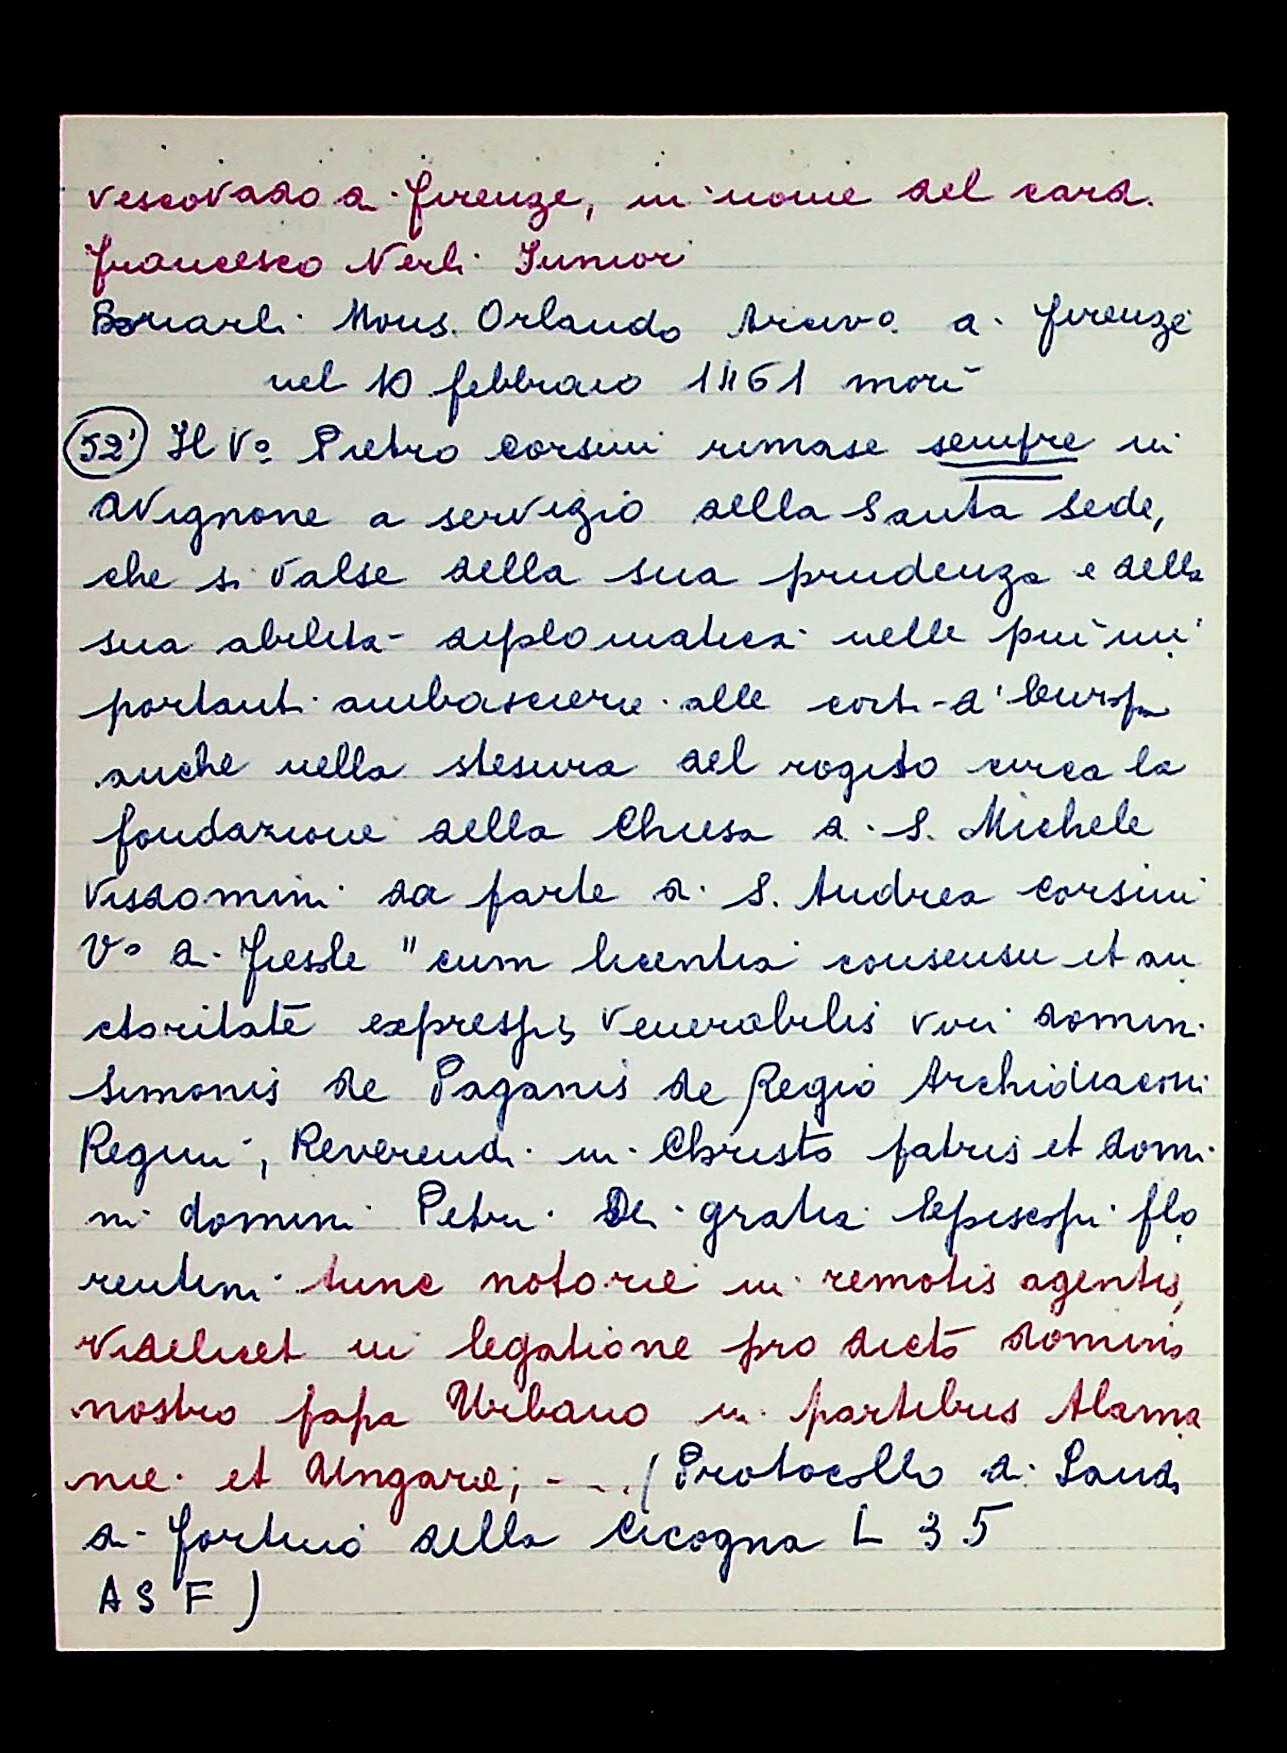 vescovado di Firenze, in nome del card.
Francesco Nerli Junior
Bonarli Mons. Orlando Arciv.o di Firenze
nel 10 febbraio 1461 morì
52') Il V.o Pietro Corsini rimase sempre in
Avignone a servizio della Santa Sede,
che si valse della sua prudenza e della
sua abilità diplomatica nelle più im
portanti ambascerie alle corti d'Europa
anche nella stesura del rogito circa la
fondazione della Chiesa di S. Michele
Visdomini da parte di S. Andrea Corsini
V.o di Fiesole "cum licentia consensu et au
ctoritate expressis venerabilis viri domini
Simonis de Paganis de Regio Archidiaconi
Regini, Reverendi in Christo patris et domi
ni domini Petri Dei gratia Episcopi flo
rentini tunc notorie in remotis agentis,
videlicet in legatione pro dicto domino
nostro papa Urbano in partibus Alama
nie et Ungarie; - ... (Protocollo di Lando
di Fortino della Cicogna L 35
ASF)